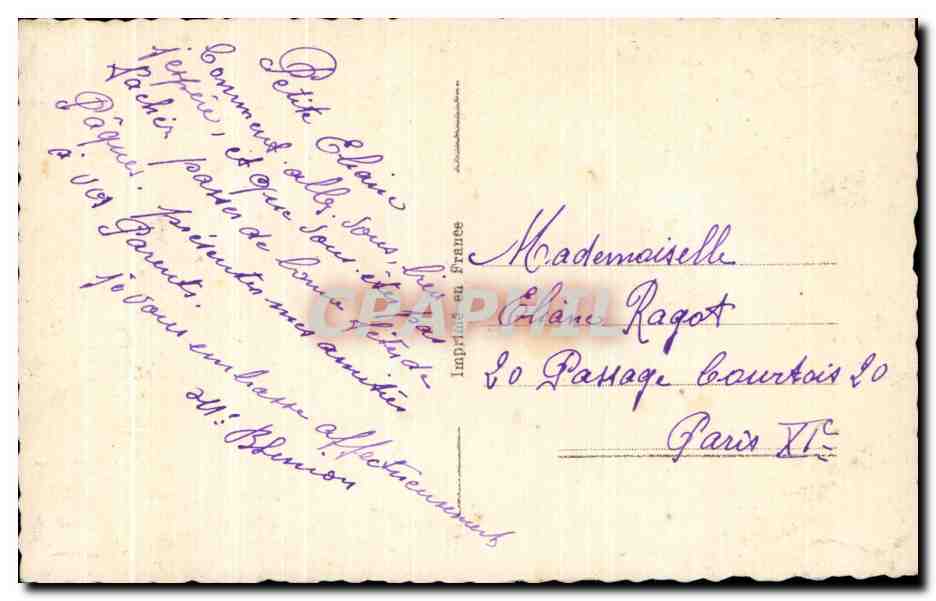 Petite Eliane
Comment allez-vous, bien
j'espère, et que vous êtes pas
fachée, passez de bonnes fêtes de
Pâques. présentez mes amitiés
à vos Parents.
je vous embrasse affectueusement
Imprimé en France
CPAPHIL
Mademoiselle
Eliane Ragot
20 Passage Courtois 20
Paris XIe